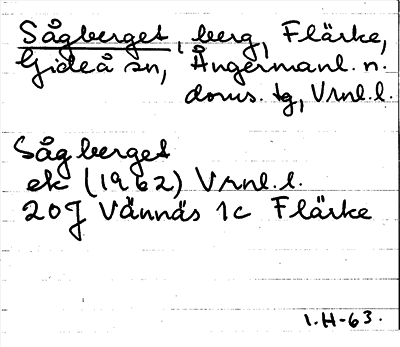 Sågberget, berg, Flärke,
Gideå sn, Ångermanl. n.
doms. tg, Vrnl.l.
Sågberget
ek (1962) Vrnl.l.
20J Vännäs 1c Flärke
1.H-63.